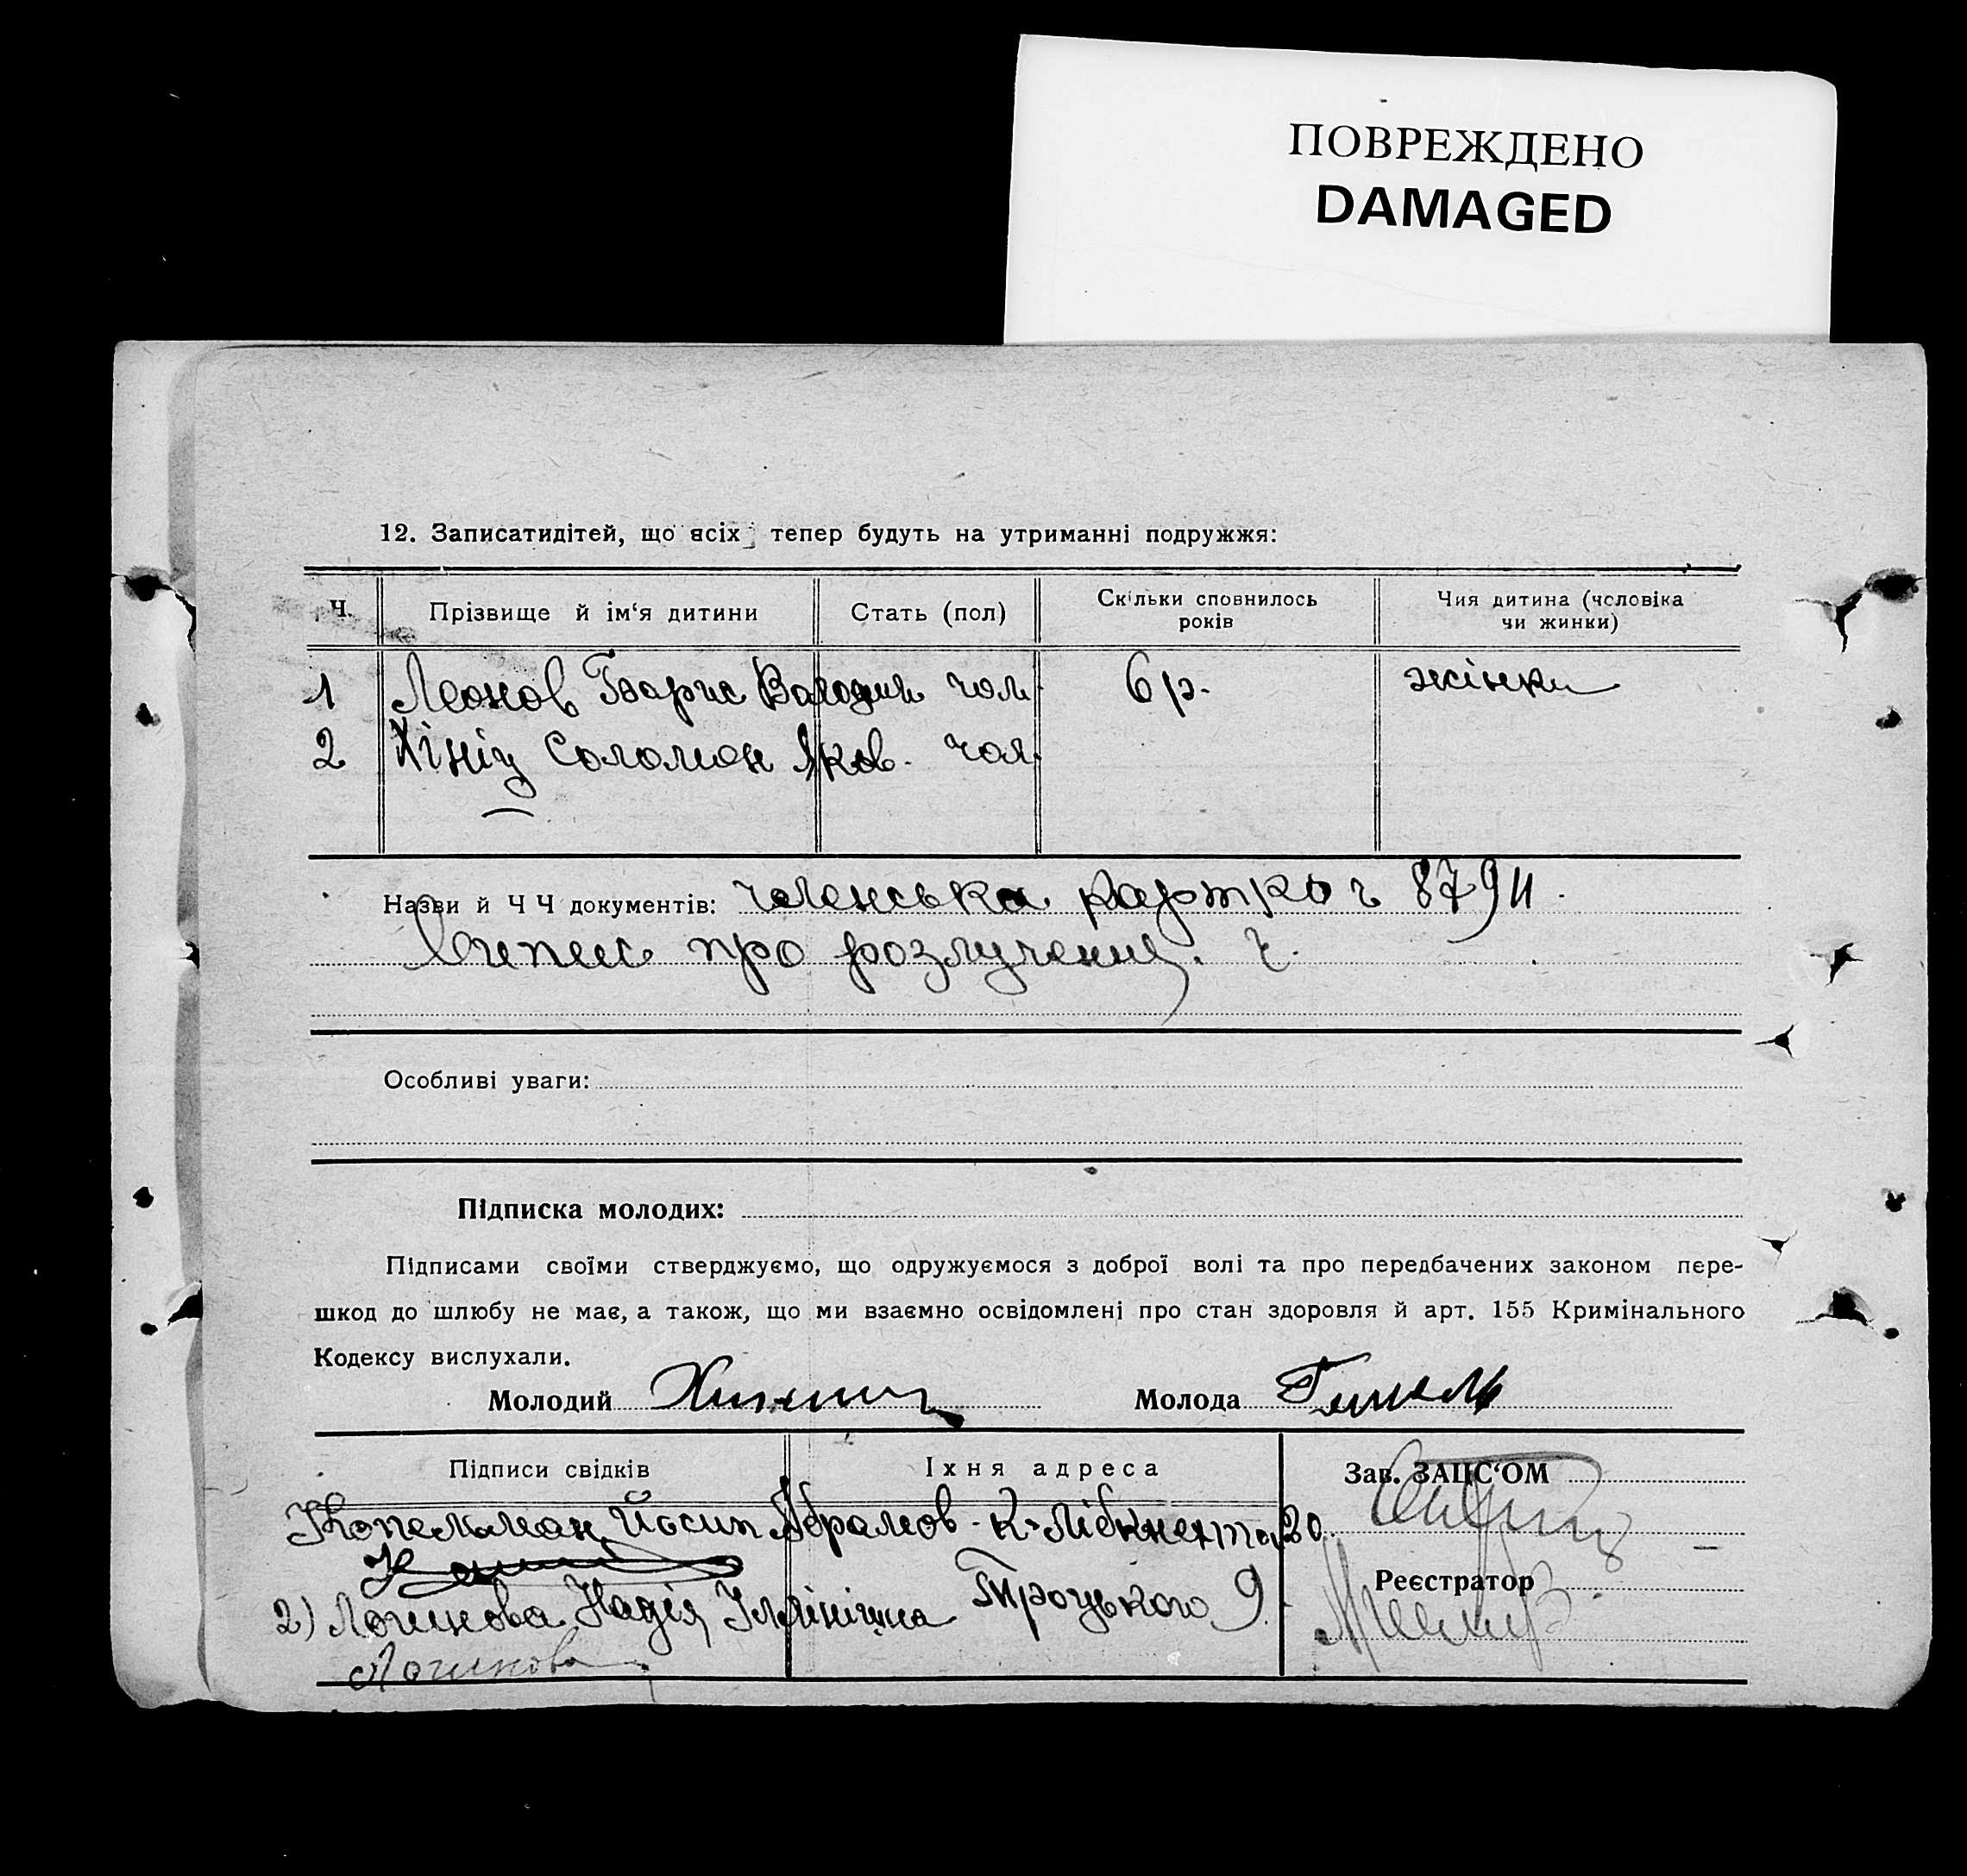 ПОВРЕЖДЕНО
DAMAGED
12. Записатидітей, що всіх тепер будуть на утриманні подружжя:
Ч. Прізвище й ім‘я дитини Стать (пол) Скільки сповнилось років Чия дитина (чоловіка чи жинки)
1 Леонов Борис Володим чол. 6 р. жінки
2 Хініц Соломон Яков. чол.
Назви й Ч Ч документів: членська картка ч 8794
Випис про розлучення. ч.
Особливі уваги:
Підписка молодих:
Підписами своїми стверджуємо, що одружуємося з доброї волі та про передбачених законом пере-
шкод до шлюбу не має, а також, що ми взаємно освідомлені про стан здоровля й арт. 155 Кримінального
Кодексу вислухали.
Молодий Молода
Підписи свідків Їхня адреса Зав. ЗАЦС‘ОМ
Копельман Йосип Абрамов - К-Лібкнехта 20
Реєстратор
2) Логинова Надія Іллінішна Троцького 9
Логинова